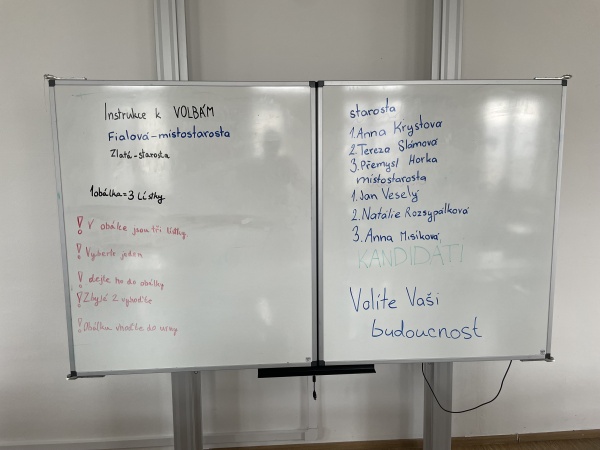 Instrukce k VOLBÁM
Fialová-místostarosta
Zlatá-starosta
1 obálka = 3 Lístky
! V obálce jsou tři lístky
! Vyberte jeden
! dejte ho do obálky
! Zbylé 2 vyhoďte
! Obálku vhoďte do urny
starosta
1. Anna Krystova
2. Tereza Slámová
3. Přemysl Horka
místostarosta
1. Jan Veselý
2. Natálie Rozsypálková
3. Anna Misíková
KANDIDÁTI
Volíte Vaši
budoucnost